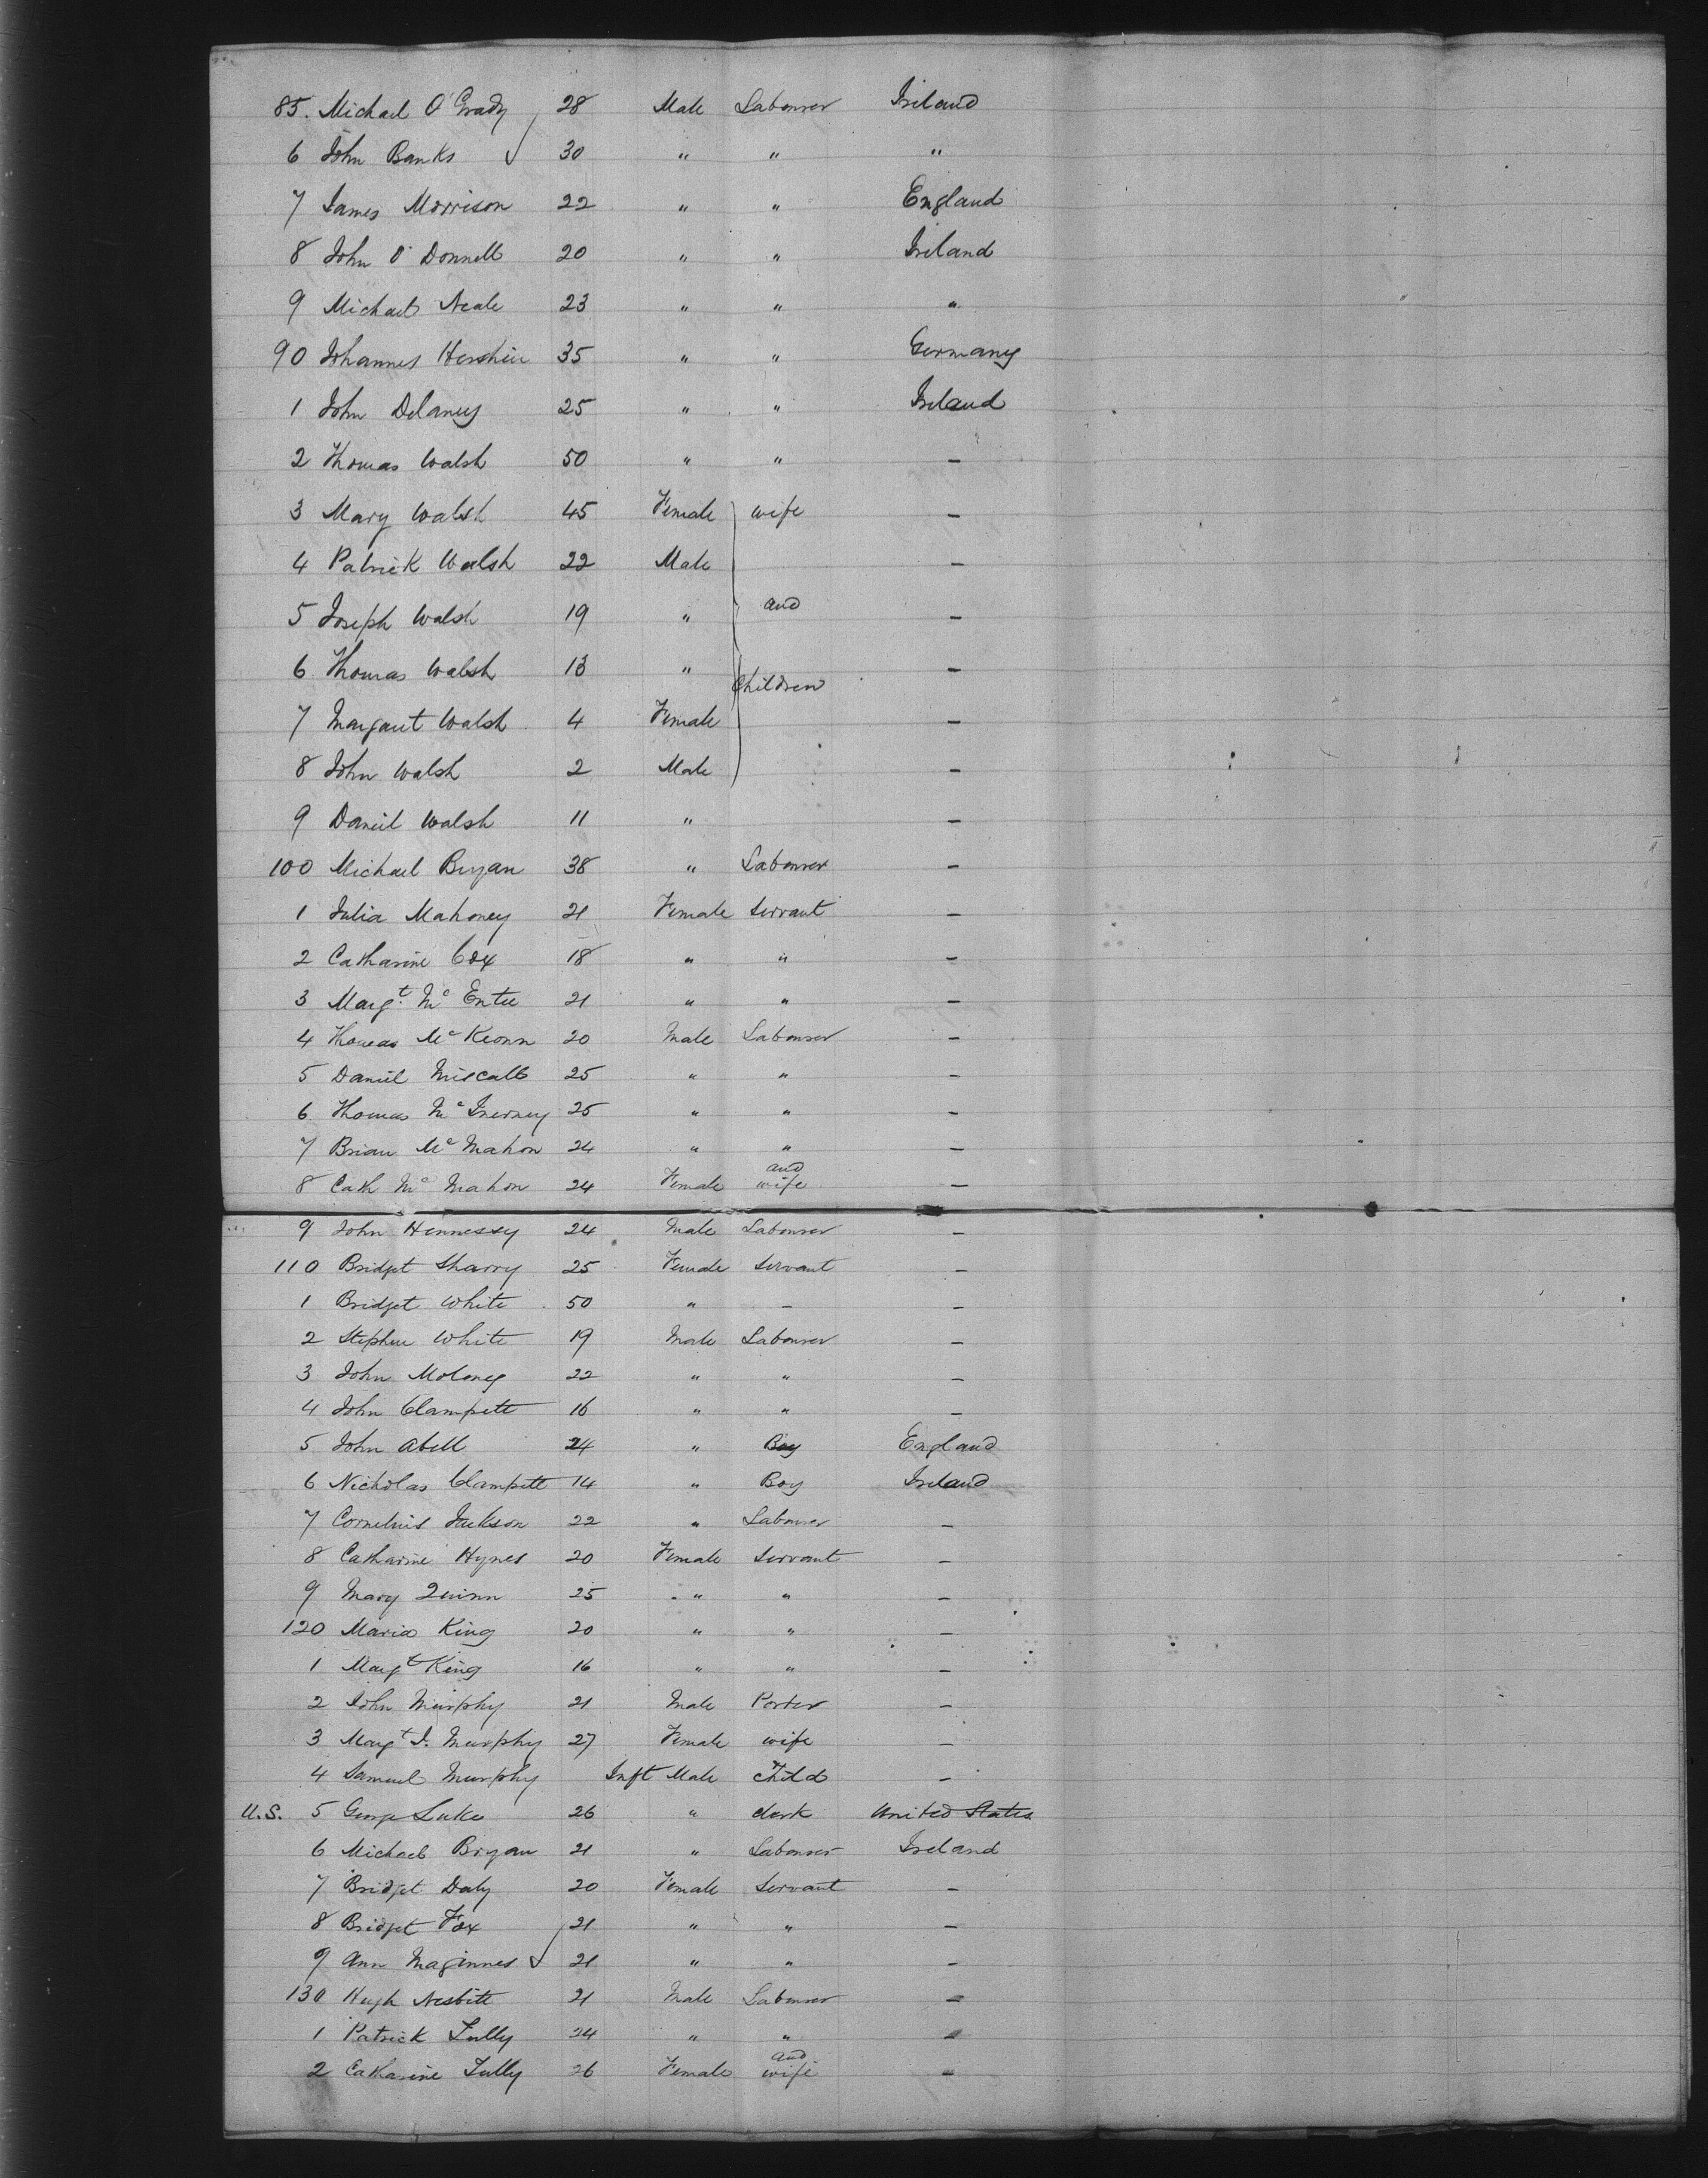 85. Michael O'Grady 28 Male Labourer Ireland
6 John Banks 30 " " "
7 James Morrison 22 " " England
8 John O'Donnell 20 " " Ireland
9 Michael Neale 23 " " "
90 Johannes 35 " " Germany
1 John Delaney 25 " " Ireland
2 Thomas Walsh 50 " " –
3 Mary Walsh 45 Female wife –
4 Patrick Walsh 22 Male –
5 Joseph Walsh 19 " and –
6 Thomas Walsh 13 " –
Children
7 Margaret Walsh 4 Female –
8 John Walsh 2 Male –
9 Daniel Walsh 11 " –
100 Michael Bryan 38 " Labourer –
1 Julia Mahoney 21 Female Servant –
2 Catharine Cox 18 " " –
3 Margt. Mc Entee 21 " " –
4 Thomas Mc Keown 20 Male Labourer –
5 Daniel Miscall 25 " " –
6 Thomas Mc Inerney 25 " " –
7 Brian Mc Mahon 24 " " –
8 Cath Mc Mahon 24 Female and wife –
9 John Hennessy 24 Male Labourer –
110 Bridget Sharry 25 Female Servant –
1 Bridget White 50 " – –
2 Stephen White 19 Male Labourer –
3 John Moloney 22 " " –
4 John Clampett 16 " " –
5 John Abell 24 " Boy England
6 Nicholas Clampett 14 " Boy Ireland
7 Cornelius Jackson 22 " Labourer –
8 Catharine Hynes 20 Female Servant –
9 Mary Quinn 25 " " –
120 Maria King 20 " " –
1 Margt King 16 " " –
2 John Murphy 21 Male Porter –
3 Margt J. Murphy 27 Female wife –
4 Samuel Murphy Inft Male Child –
U.S. 5 George Luke 26 " clerk United States
6 Michael Bryan 21 " Labourer Ireland
7 Bridget Daly 20 Female Servant –
8 Bridget Fox 21 " " –
9 Ann Maginnes 21 " " –
130 Hugh Nesbitt 21 Male Labourer –
1 Patrick Tully 24 " " –
2 Catharine Tully 26 Female and wife –